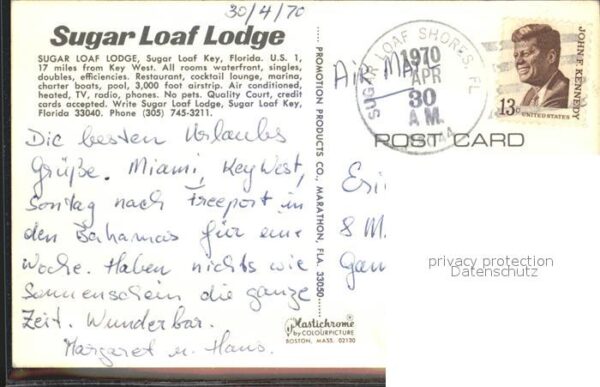 30/4/70
Sugar Loaf Lodge
SUGAR LOAF LODGE, Sugar Loaf Key, Florida. U.S. 1,
17 miles from Key West. All rooms waterfront, singles,
doubles, efficiencies. Restaurant, cocktail lounge, marina,
charter boats, pool, 3,000 foot airstrip. Air conditioned,
heated, TV, radio, phones. No pets. Quality Court, credit
cards accepted. Write Sugar Loaf Lodge, Sugar Loaf Key,
Florida 33040. Phone (305) 745-3211.
Die besten Urlaubs
Grüße. Miami, Key West,
Sonntag nach Freeport in
den Bahamas für eine
Woche. Haben nichts wie
Sonnenschein die ganze
Zeit. Wunderbar.
Margaret u. Hans.
PROMOTION PRODUCTS CO., MARATHON, FLA. 33050
Plastichrome
by COLOURPICTURE
BOSTON, MASS. 02130
Air Mail
SUGAR LOAF SHORES, FL
1970
APR
30
A.M.
JOHN F. KENNEDY
13c
UNITED STATES
POST CARD
Eri
8 M
Gan
privacy protection
Datenschutz